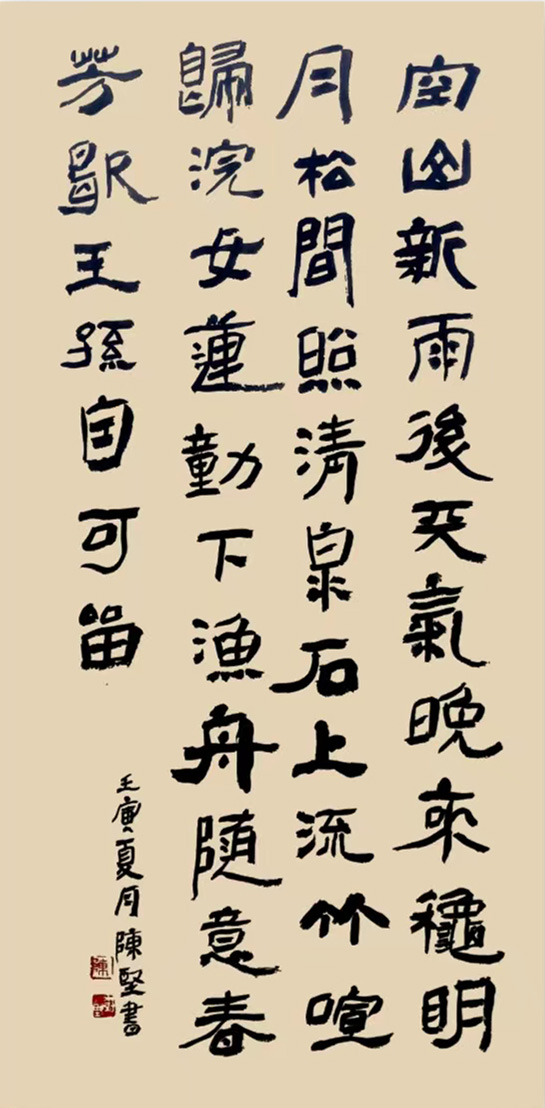 空山新雨後天氣晚來龝明
月松間照清泉石上流竹喧
歸浣女蓮動下漁舟随意春
芳歇王孫自可留
壬寅夏月陳堅書
陳